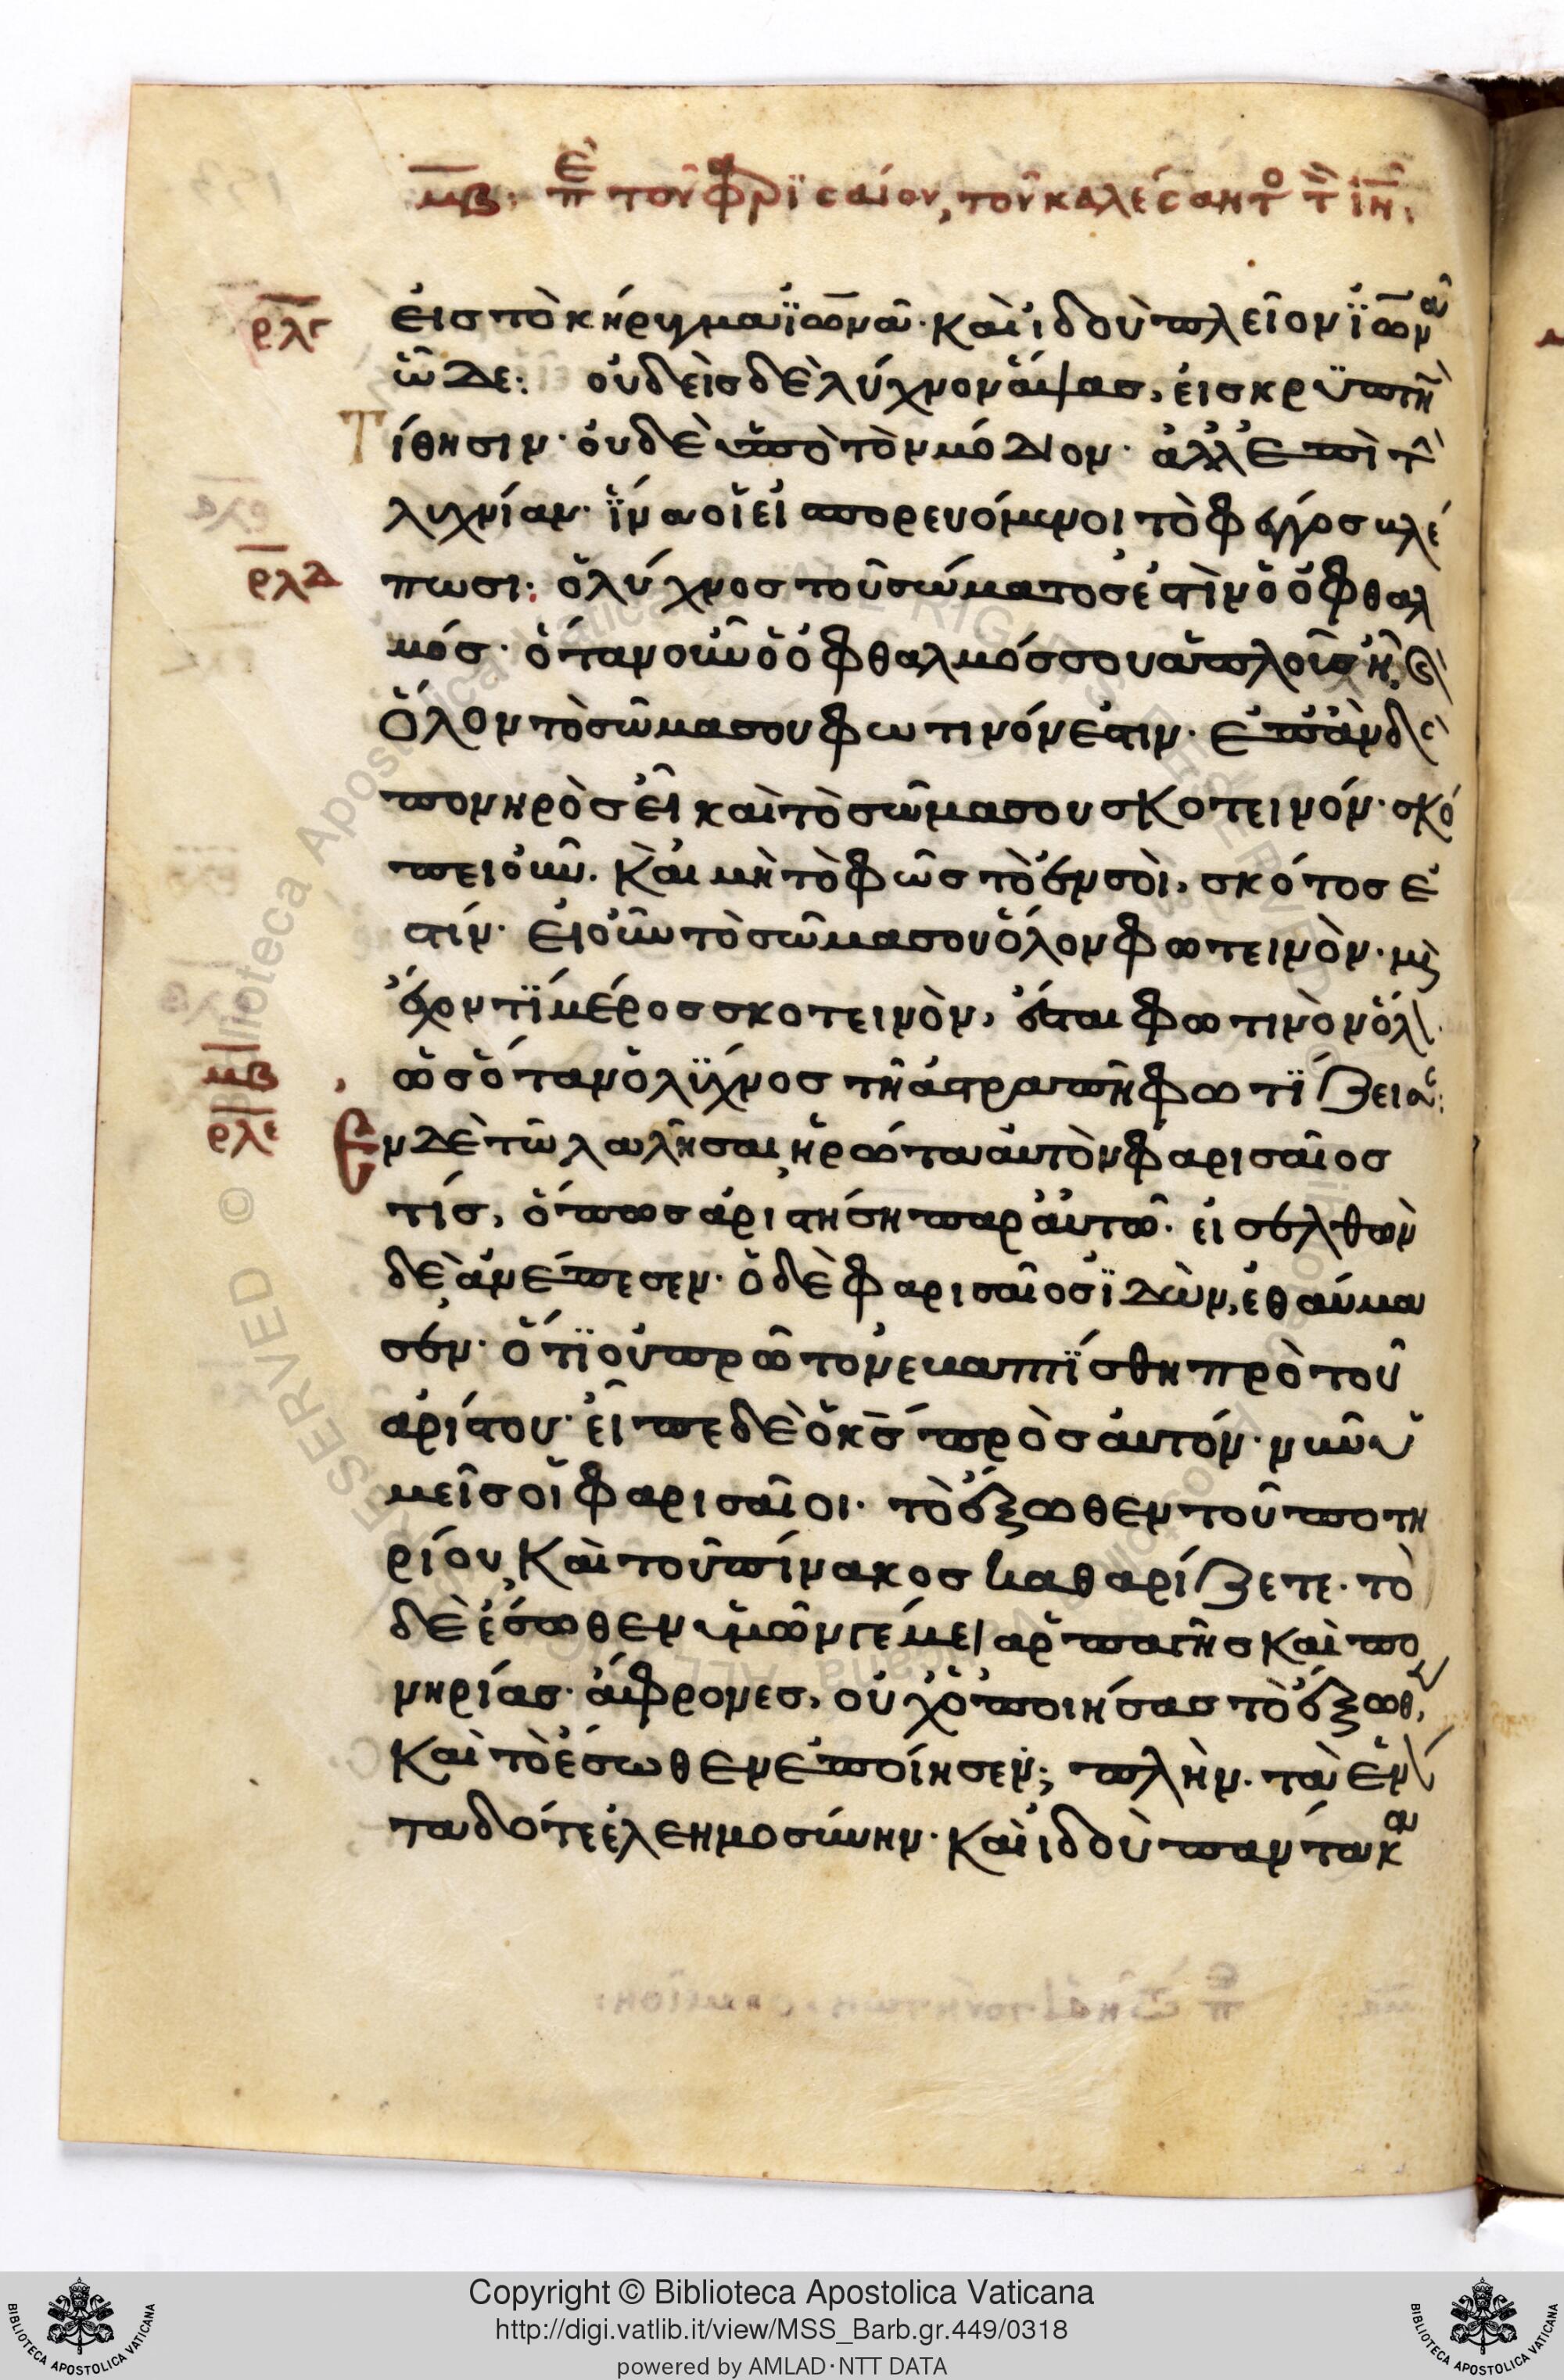 μβ: πε τοῦ φαρϊσαίου, τοῦ καλέσαντο τ ιν:
ρλγ εἰσ τὸ κήρυγμα ϊωνᾶ· καὶ ἰδοὺ πλεῖον ϊωνᾶ
ὧδε: οὐδεὶσ δὲ λύχνον ἅψασ, εἰσ κρϋπτὴν
τίθησιν· οὐδὲ ὑπὸ τὸν μόδιον· ἀλλ ἐπὶ τὴν
λυχνίαν· ἵνα οἱ εἰσπορευόμενοι τὸ φέγγοσ βλέ
ρλδ πωσι: ὁ λύχνοσ τοῦ σώματοσ ἐστὶν ὁ ὀφθαλ
μόσ· ὅταν οὖν ὁ ὀφθαλμόσ σου ἁπλοῦσ ἦ, καὶ
ὅλον τὸ σῶμα σου φωτινόν ἐστιν· ἐπὰν δὲ
πονηρὸσ εἶ καὶ τὸ σῶμα σου σκοτεινόν· σκό
πει οὖν. καὶ μὴ τὸ φῶσ τὸ ἐν σοὶ, σκότοσ ἐ
στίν· εἰ οὖν τὸ σῶμα σου ὅλον φωτεινὸν· μὴ
ἔχον τϊ μέροσ σκοτεινὸν, ἔσται φωτινὸν ὅλον
μβ ὡσ ὅταν ὁ λϊχνοσ τῆ ἀστραπῆ φωτϊζει σε:
ρλε Ἐν δὲ τῶ λαλῆσαι, ἠρώτα αὐτὸν φαρισαῖοσ
τίσ, ὅπωσ ἀριστήση παρ αὐτῶ· εἰσελθὼν
δὲ ἀνέπεσεν· ὁ δὲ φαρισαῖοσ ϊδὼν, ἐθαύμα
σεν· ὅτϊ οὐ πρῶτον εβαπτϊσθη πρὸ τοῦ
ἀρίστου· εἶπε δὲ ὁ κσ πρὸσ αὐτόν· νῦν ὑ
μεῖσ οἱ φαρισαῖοι· τὸ ἔξωθεν τοῦ ποτη
ρίου καὶ τοῦ πίνακοσ καθαρίζετε· τὸ
δὲ ἔσωθεν ὑμῶν γέμει ἁρπαγῆσ καὶ πο
νηρίασ· ἄφρονεσ, οὐχ ὁ ποιήσασ τὸ ἔξωθεν,
καὶ τὸ ἔσωθεν ἐποίησεν; πλὴν· τὰ ἐνόν
τα δότε ἐλεημοσύνην· καὶ ἰδοὺ πάντα κα
Copyright © Biblioteca Apostolica Vaticana
http://digi.vatlib.it/view/MSS_Barb.gr.449/0318
powered by AMLAD·NTT DATA
BIBLIOTECA APOSTOLICA VATICANA
BIBLIOTECA APOSTOLICA VATICANA